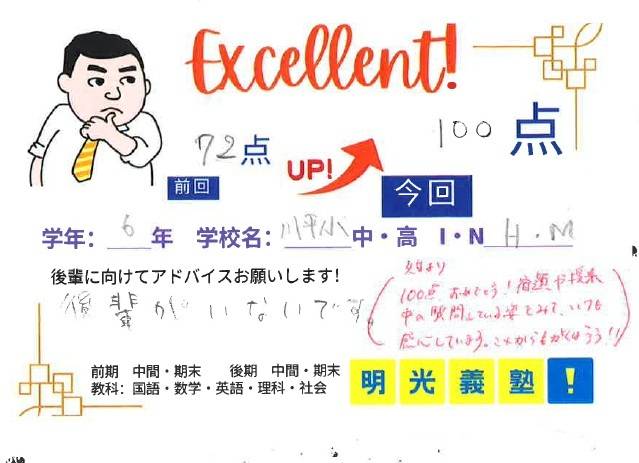 Excellent!
72点
UP!
100点
前回
今回
学年： 6 年 学校名： 川平小 中・高 I・N H.M
後輩に向けてアドバイスお願いします!
後輩がいないです。
先生より
100点 おめでとう！宿題や授業
中の質問している姿をみて、いつも
感心しています。これからもがんばろう!!
前期 中間・期末 後期 中間・期末
教科：国語・数学・英語・理科・社会
明光義塾!